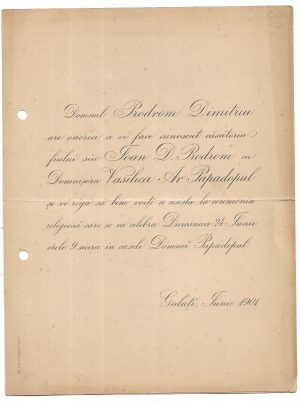 Domnul Prodrom Dimitriu
are onórea a vĕ face cunoscut căsătoria
fiului sĕu Ioan D. Prodrom cu
Domnișóra Vasilica Ar. Papadopul
și vĕ rógă să bine-voiți a asista la ceremonia
religiósă care se va celebra Duminica 24 Iunie
orele 9 seara în casele Domnei Papadopul
Galați, Iunie 1901